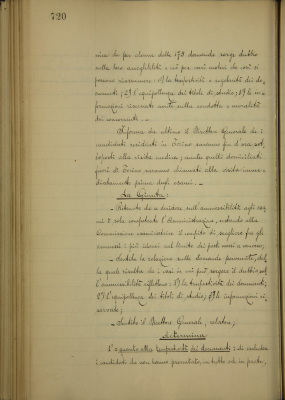 720
cina che per alcune delle 173 domande sorge dubbio
sulla loro ammissibilità e ciò per vari motivi che così si
possono riassumere: 1) la tempestività e regolarità dei do-
cumenti; 2) l'equipollenza dei titoli di studio; 3) le in-
formazioni riservate avute sulla condotta e moralità
dei concorrenti. -
Informa da ultimo il Direttore Generale che i
candidati residenti in Torino saranno fin d'ora sot-
toposti alla visita medica; mentre quelli domiciliati
fuori di Torino saranno chiamati alla visita imme-
diatamente prima degli esami. -
La Giunta:
- Ritenuto che a decidere sull'ammissibilità agli esa-
mi è solo competente l'Amministrazione, restando alla
Commissione esaminatrice il compito di scegliere fra gli
ammessi i più idonei nel limite dei posti messi a concorso;
- Sentita la relazione sulle domande presentate, dal-
la quale risulta che i casi in cui può sorgere il dubbio sul-
l'ammissibilità riflettono: 1) la tempestività dei documenti;
2) l'equipollenza dei titoli di studio; 3) le informazioni ri-
servate;
- Sentito il Direttore Generale, relatore;
determina
1° = quanto alla tempestività dei documenti: di escludere
i candidati che non hanno presentato, in tutto od in parte,